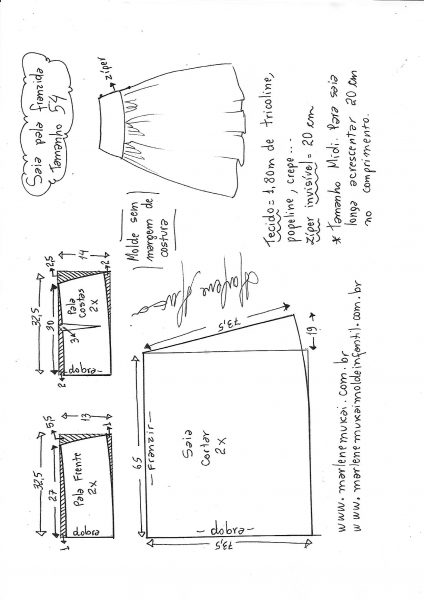 Saia pala franzida
Tamanho 54
zíper
Tecido = 1,80m de tricoline,
popeline, crepe...
zíper invisível = 20 cm
* Tamanho Midi. Para saia
longa acrescentar 20 cm
no comprimento.
Molde sem
margem de
costura
Marlene
Mukai
32,5
30
2,5
14
2
Pala
costas
2x
3
2
dobra
32,5
27
5,5
13
1
Pala Frente
2x
1
dobra
73,5
19
65
Franzir
Saia
Cortar
2x
dobra
73,5
www.marlenemukai.com.br
www.marlenemukaimoldeinfantil.com.br